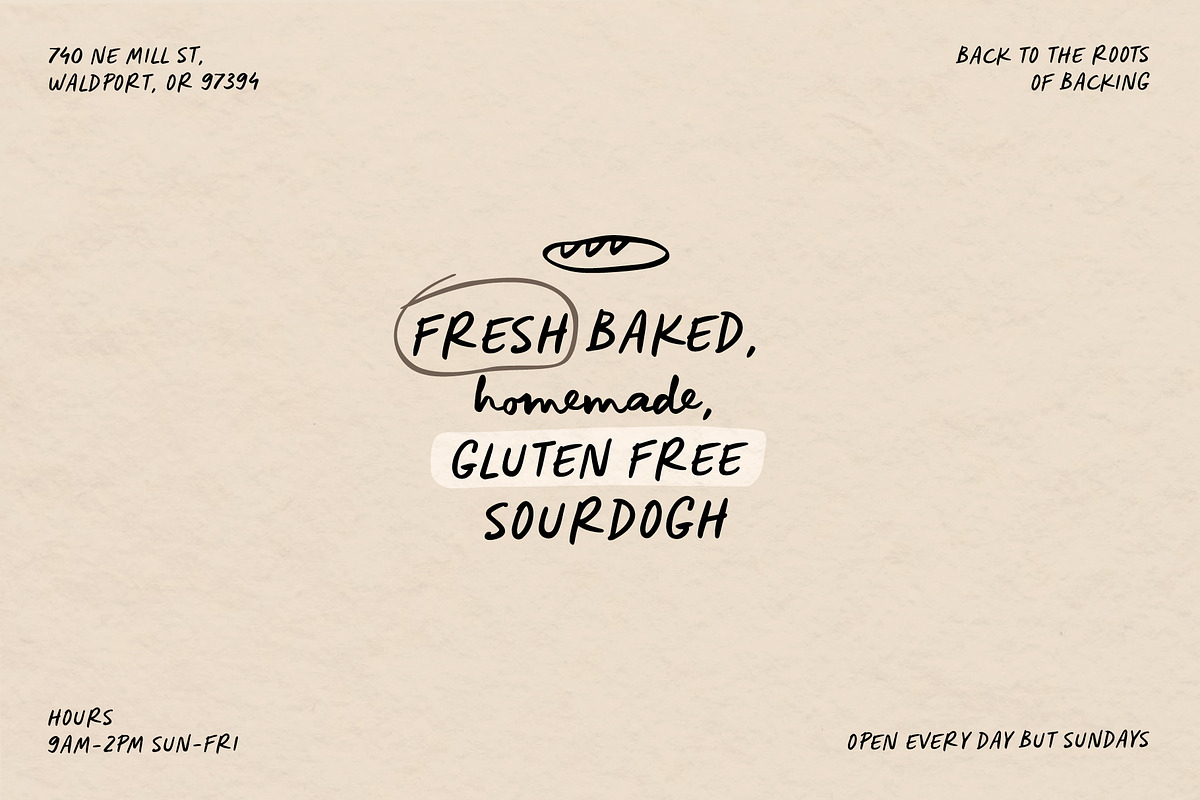 740 NE MILL ST,
WALDPORT, OR 97394
BACK TO THE ROOTS
OF BACKING
FRESH BAKED,
homemade,
GLUTEN FREE
SOURDOGH
HOURS
9AM-2PM SUN-FRI
OPEN EVERY DAY BUT SUNDAYS